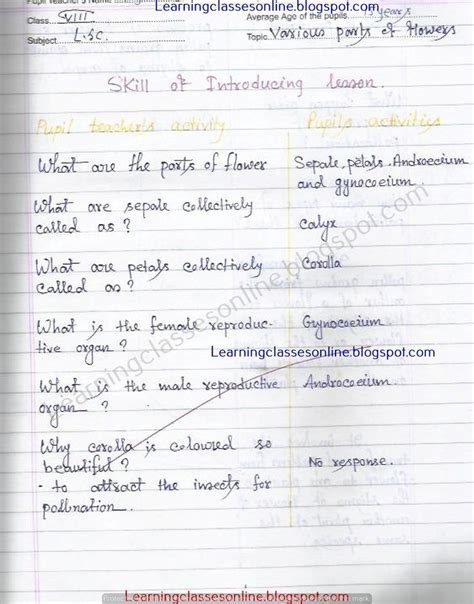 Learningclassesonline.blogspot.com
Pupil Teacher's Name
Class VIII Average Age of the pupils. 13 years
Subject L.Sc. Topic Various parts of flowers
Skill of Introducing lesson.
Pupil teacher's activity Pupils activities
What are the parts of flower Sepale, petals, Androecium
and gynocoeium.
What are sepale collectively
called as ? Calyx
What are petals collectively Corolla
called as ?
What is the female reproduc- Gynocoeium.
tive organ ? Learningclassesonline.blogspot.com
What is the male reproductive Androcoeium.
organ ?
Why corolla is coloured so
beautiful ? No response.
- to attract the insects for
pollination.
learningclassesonline.blogspot.com
Learningclassesonline.blogspot.com